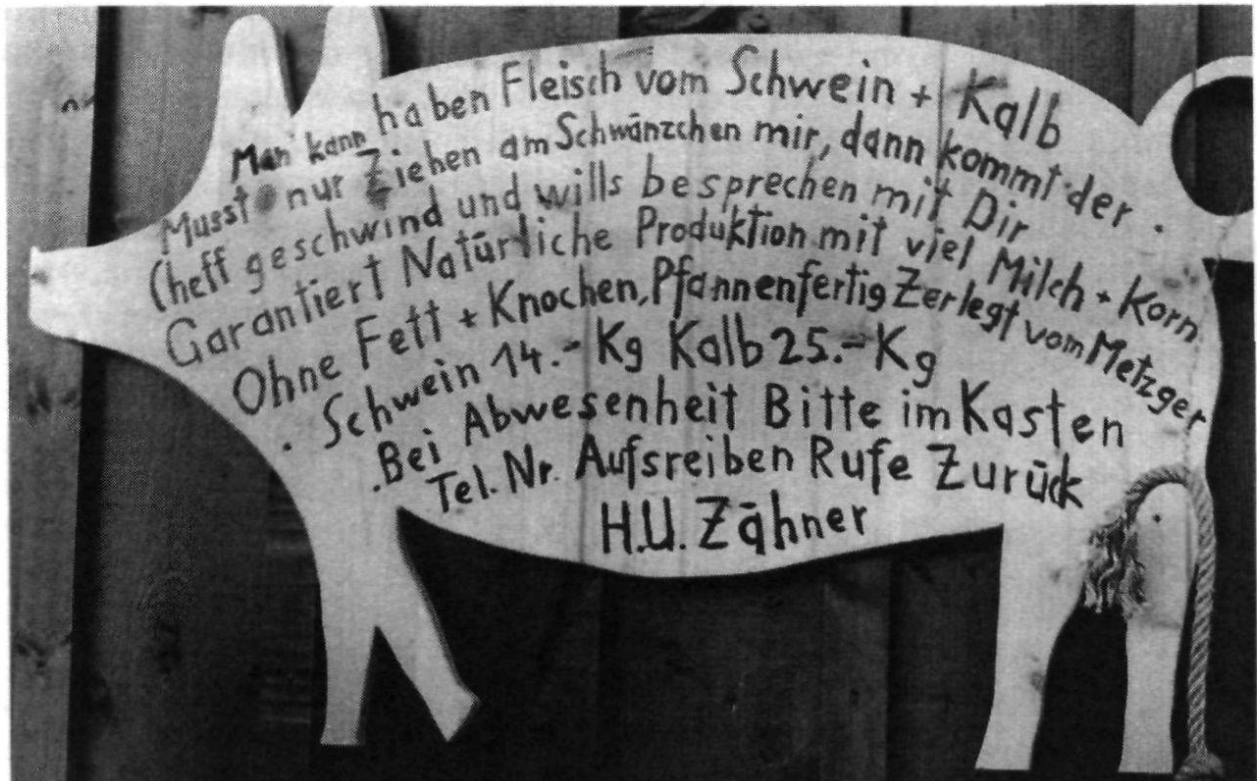 Man kann haben Fleisch vom Schwein + Kalb
Musst nur Ziehen am Schwänzchen mir, dann kommt der .
Cheff geschwind und wills besprechen mit Dir
Garantiert Natürliche Produktion mit viel Milch + Korn
Ohne Fett + Knochen, Pfannenfertig Zerlegt vom Metzger
. Schwein 14.- Kg Kalb 25.- Kg
.Bei Abwesenheit Bitte im Kasten
Tel. Nr. Aufsreiben Rufe Zurück
H.U. Zähner